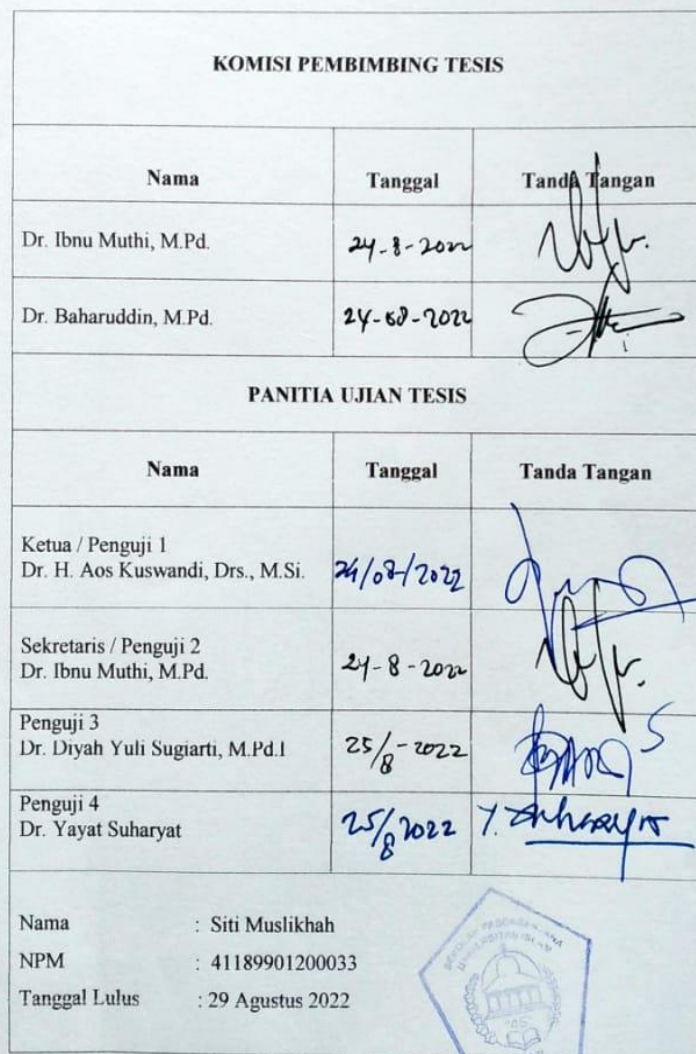 KOMISI PEMBIMBING TESIS
Nama Tanggal Tanda Tangan
Dr. Ibnu Muthi, M.Pd. 24-8-2022
Dr. Baharuddin, M.Pd. 24-08-2022
PANITIA UJIAN TESIS
Nama Tanggal Tanda Tangan
Ketua / Penguji 1
Dr. H. Aos Kuswandi, Drs., M.Si. 24/08/2022
Sekretaris / Penguji 2
Dr. Ibnu Muthi, M.Pd. 24-8-2022
Penguji 3
Dr. Diyah Yuli Sugiarti, M.Pd.I 25/8-2022
Penguji 4
Dr. Yayat Suharyat 25/8 2022
Nama : Siti Muslikhah
NPM : 41189901200033
Tanggal Lulus : 29 Agustus 2022
UNIVERSITAS ISLAM
"45"